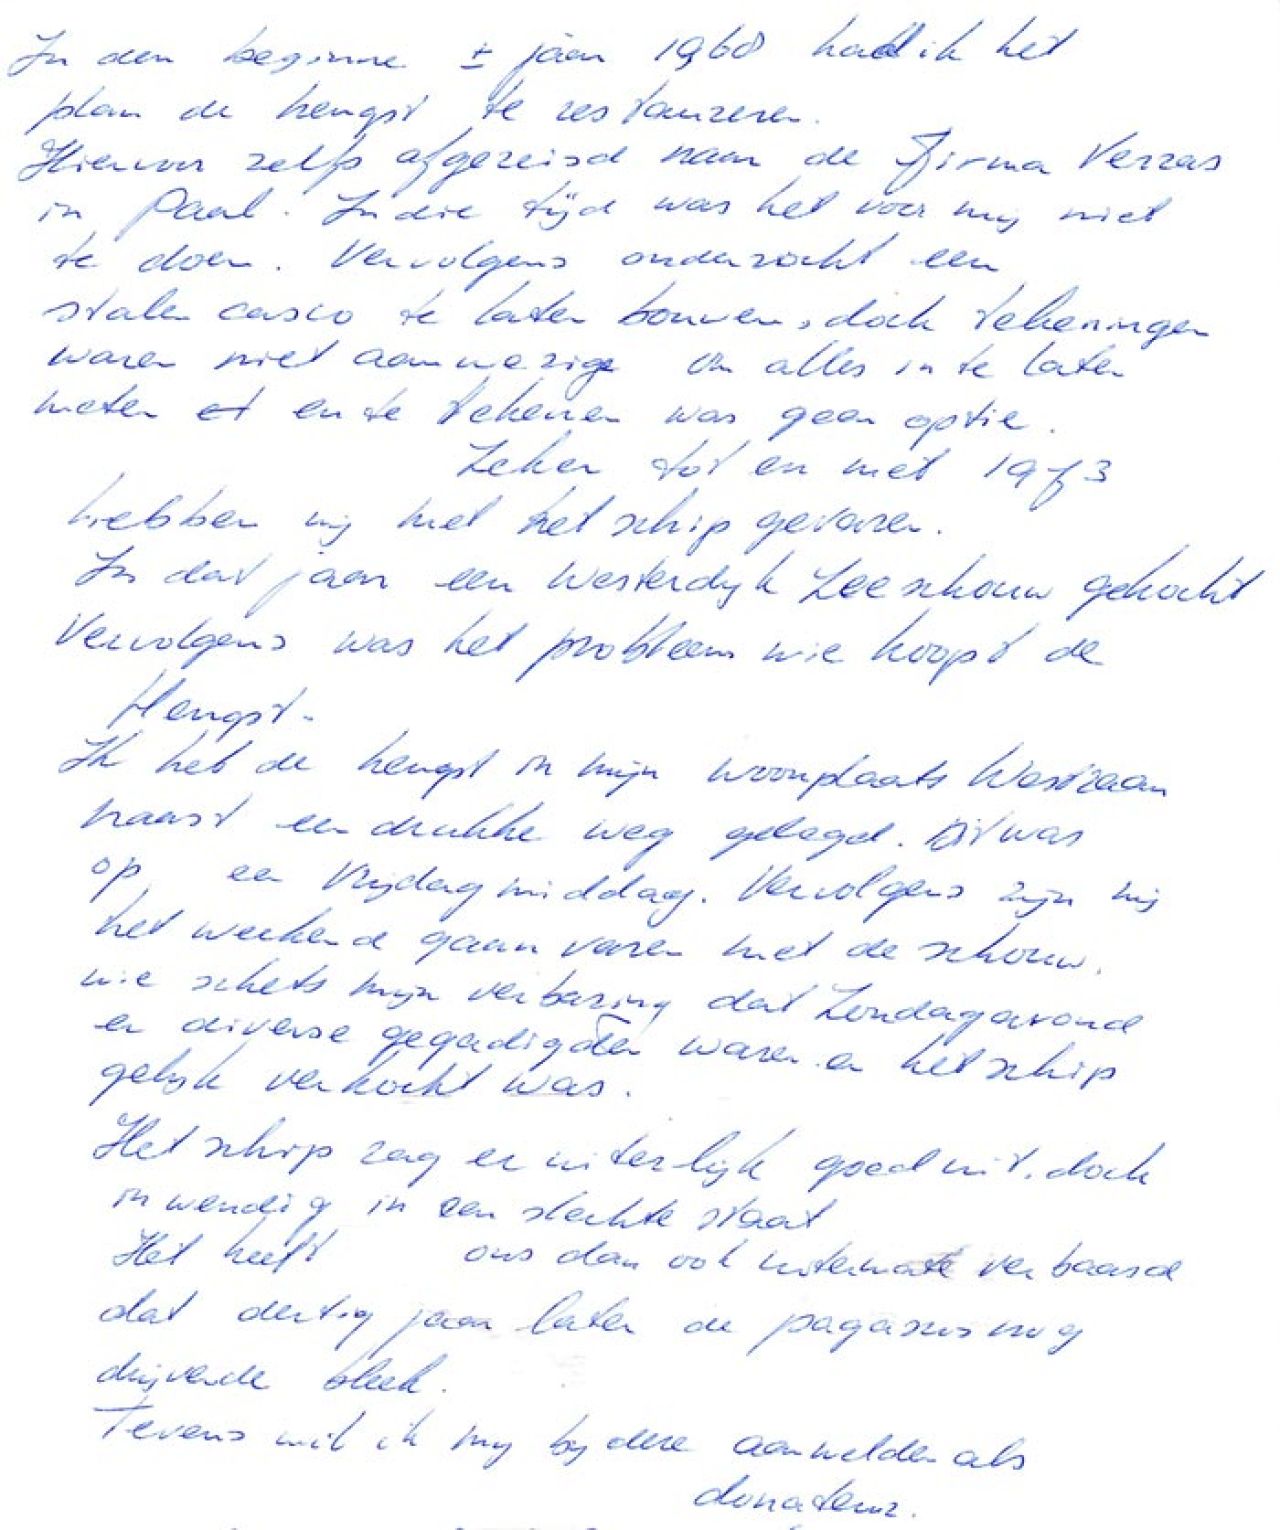 In den beginne ± jaar 1968 had ik het
plan de hengst te restaureren.
Hiervoor zelfs afgereisd naar de Firma Verras
in Paal. In die tijd was het voor mij niet
te doen. Vervolgens onderzocht een
stalen casco te laten bouwen, doch tekeningen
waren niet aanwezig om alles in te laten
meten et en te tekenen was geen optie.
Zeker tot en met 1973
hebben wij met het schip gevaren.
In dat jaar een Westerdijk Zeeschouw gekocht
Vervolgens was het probleem wie koopt de
Hengst.
Ik heb de hengst in mijn woonplaats Westzaan
naast een drukke weg gelegd. Dit was
op een Vrijdagmiddag. Vervolgens zijn wij
het weekend gaan varen met de schouw.
wie schets mijn verbazing dat Zondagavond
er diverse gegadigden waren en het schip
gelijk verkocht was.
Het schip zag er uiterlijk goed uit, doch
inwendig in een slechte staat
Het heeft ons dan ook uitermate verbaasd
dat dertig jaar later de pagasus nog
drijvende bleek.
Tevens wil ik mij bij deze aanmelden als
donateur.